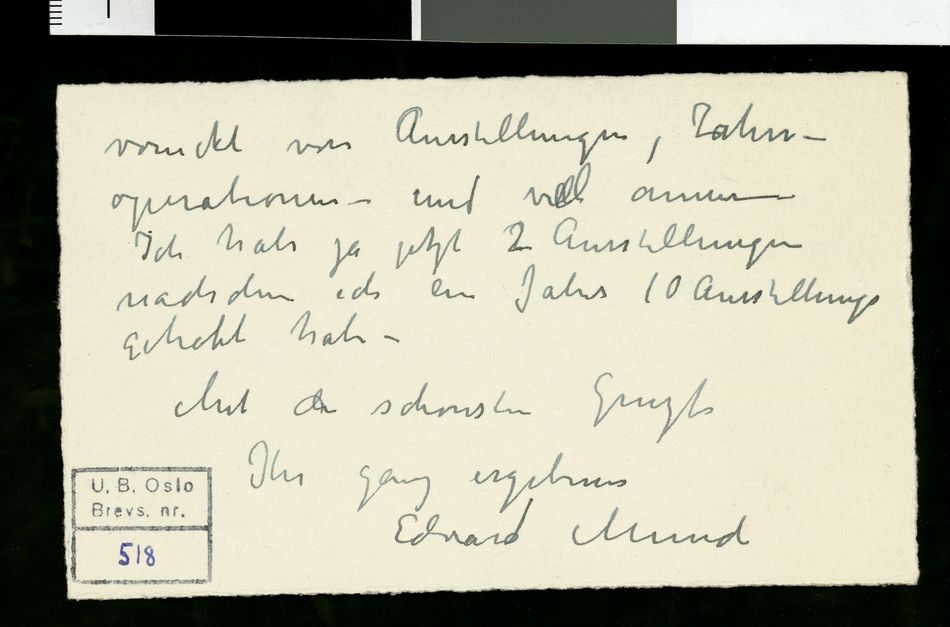 verrückt von Ausstellungen, Zahn-
operationen – und viel anderen –
Ich habe ja jetzt 2 Ausstellungen
nachdem ich ein Jahr 10 Ausstellunge
gehabt habe –
Mit den schönsten Grüssen
Ihr ganz ergebener
Edvard Munch
U. B. Oslo
Brevs. nr.
518